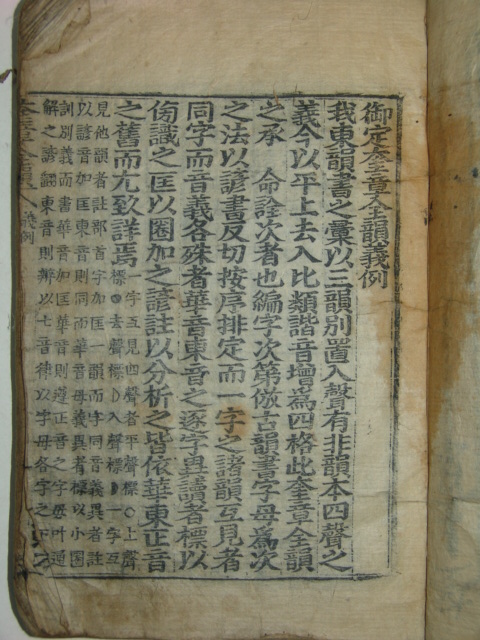 御定奎章全韻義例
我東韻書之彙以三韻別置入聲有非韻本四聲之
義今以平上去入比類諧音增爲四格此奎章全韻
之承　命詮次者也編字次第倣古韻書字母爲次
之法以諺書反切按序排定而一字之諸韻互見者
同字而音義各殊者華音東音之逐字異讀者標以
傍識之匡以圈加之諺註以分析之皆依華東正音
之舊而尤致詳焉
一字互見四聲者平聲標○上聲
標●去聲標D入聲標◗一字互
見他韻者註部首字加匡一韻而字同音義異者註
以諺音加匡東音則同而華音母義異者標以小圈
訓別義而書華音加匡華音則遵正音之字母叶通
解之諺翻東音則辨以七音律以字母各字之下
義例